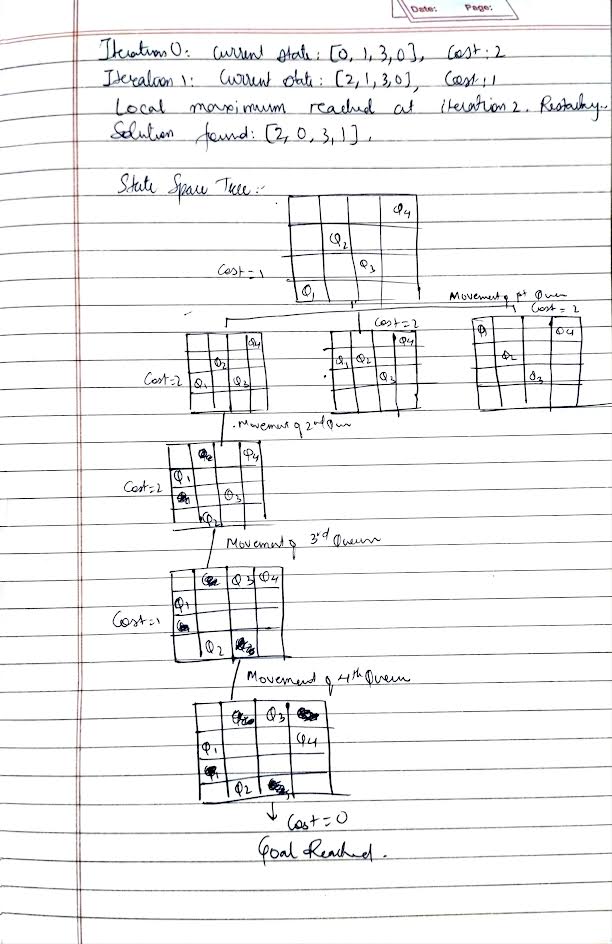 Date: Page:
Iteration 0: Current state: [0, 1, 3, 0], Cost: 2
Iteration 1: Current state: [2, 1, 3, 0], Cost: 1
Local maximum reached at iteration 2. Restarting..
Solution found: [2, 0, 3, 1].
State Space Tree:-
Q4
Q2
Cost = 1 Q3
Q1
Movement of 1st Queen
Cost = 2 Cost = 2
Q4 Q4 Q1 Q4
Q2 Q1 Q2 Q2
Cost=2 Q1 Q3 Q3 Q3
Movement of 2nd Queen
Q4
Q1
Cost=2 Q3
Q2
Movement of 3rd Queen
Q3 Q4
Q1
Cost=1
Q2
Movement of 4th Queen
Q3
Q1 Q4
Q2
Cost = 0
Goal Reached.